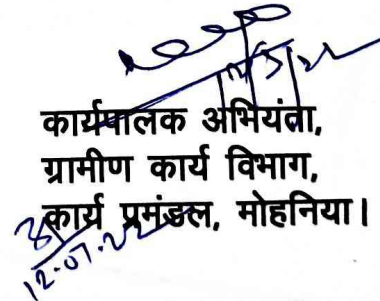 कार्यपालक अभियंता,
ग्रामीण कार्य विभाग,
कार्य प्रमंडल, मोहनिया।
12.07.22